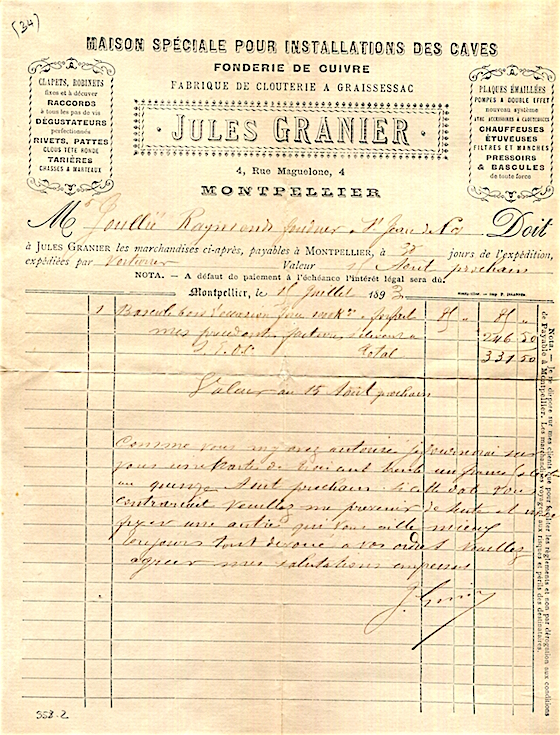 (34)
MAISON SPÉCIALE POUR INSTALLATIONS DES CAVES
FONDERIE DE CUIVRE
FABRIQUE DE CLOUTERIE A GRAISSESSAC
JULES GRANIER
4, Rue Maguelone, 4
MONTPELLIER
CLAPETS, ROBINETS
fixes et à décuver
RACCORDS
à tous les pas de vis
DÉGUSTATEURS
perfectionnés
RIVETS, PATTES
CLOUS TÊTE RONDE
TARIÈRES
CHASSES A MARTEAUX
PLAQUES ÉMAILLÉES
POMPES A DOUBLE EFFET
nouveau système
CHAUFFEUSES
ÉTUVEUSES
FILTRES ET MANCHES
PRESSOIRS
& BASCULES
de toute force
M Raymond St Jean de Doit
à JULES GRANIER les marchandises ci-après, payables à MONTPELLIER, à jours de l'expédition,
expédiées par Valeur Août prochain
NOTA. — A défaut de paiement à l'échéance l'intérêt légal sera dû.
Montpellier, le 15 Juillet 189
1 Bascule d'occasion
mes précédentes factures 246 50
Total 331 50
Valeur au 15 Août prochain
Comme vous m'avez autorisé je fournirai sur
vous trente un francs
au quinze Août prochain si cette date vous
contrariait veuillez me prévenir de suite et
fixer une autre qui vous aille mieux
Toujours tout dévoué à vos ordres veuillez
agréer mes salutations empressées
Nota. — Je ne dispose sur mes clients que pour faciliter les règlements et non par dérogation aux conditions
de Payable à Montpellier. Les marchandises voyagent aux risques et périls des destinataires.
558.2